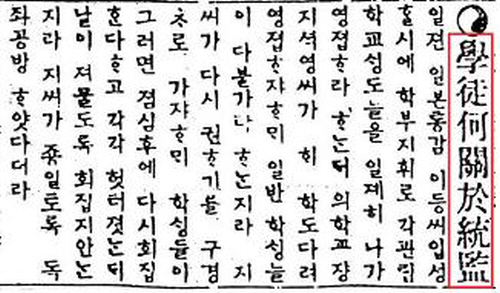 學徒何關於統監
일젼 일본통감 이등씨입셩
ᄒᆞᆯ시에 학부지휘로 각관립
학교ᄉᆡᆼ도들을 일졔히 나가
영졉ᄒᆞ라 ᄒᆞ눈ᄃᆡ 의학교쟝
지셕영씨가 학도다려
영졉ᄒᆞ쟈ᄒᆞᄆᆡ 일반 학ᄉᆡᆼ들
이 다불가 ᄒᆞ눈지라 지
씨가 다시 권ᄒᆞ기를 구경
ᄎᆞ로 가쟈ᄒᆞᄆᆡ 학ᄉᆡᆼ들이
그러면 졈심후에 다시회집
ᄒᆞᆫ다ᄒᆞ고 각각 헛터졋눈ᄃᆡ
날이 져물도록 회집지안눈
지라 지씨가 죵일토록 독
좌공방 ᄒᆞ얏다더라